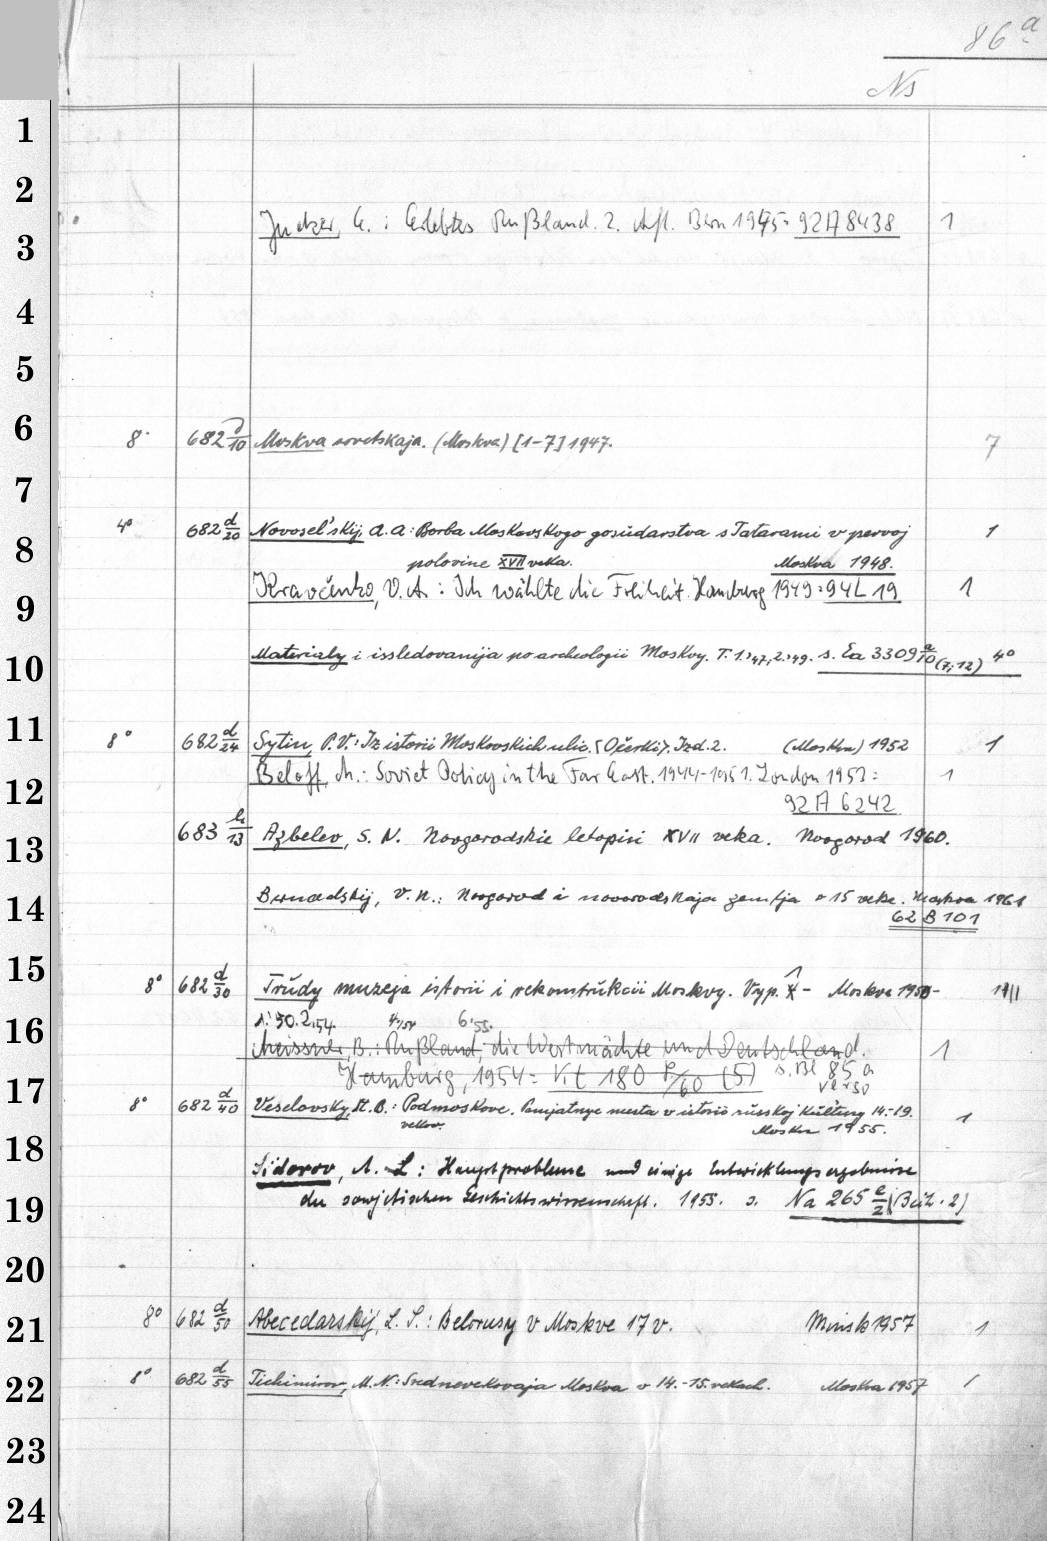 86 a
Ns
1
2
3
Judzer, E.: Erlebtes Rußland. 2. Aufl. Bern 1945 = 92A8438 1
4
5
6
8° 682 d/10 Moskva sovetskaja. (Moskva) [1-7] 1947. 7
7
8
4° 682 d/20 Novosel'skij, A. A: Borba Moskovskogo gosudarstva s Tatarami v pervoj 1
polovine XVII veka. Moskva 1948.
9
Kravčenko, V. A.: Ich wählte die Freiheit. Hamburg 1949 = 94L19 1
10
Materialy i issledovanija po archeologii Moskvy. T. 1.'47, 2.'49. s. Ea 3309 a/10 (7; 12) 4°
11
8° 682 d/24 Sytin, P. V.: Iz istorii Moskovskich ulic. (Očerki). Izd. 2. (Moskva) 1952 1
12
Beloff, M.: Soviet Policy in the Far East. 1944-1951. London 1953 = 1
92 A 6242
13
683 h/13 Azbelev, S. N. Novgorodskie letopisi XVII veka. Novgorod 1960.
14
Bernadskij, V. N.: Novgorod i novgorodskaja zemlja v 15 veke. Moskva 1961
62 B 101
15
8° 682 d/30 Trudy muzeja istorii i rekonstrukcii Moskvy. Vyp. 1 - Moskva 1950-
16
1.'50. 2.'54. 4.'54 6.'55.
Meissner, B.: Rußland, die Westmächte und Deutschland. 1
Hamburg, 1954 = V. t 180 (5) s. Bl 85 a
17
8° 682 d/40 Veselovsky, S. B.: Podmoskove. Pamjatnye mesta v istorii russkoj kultury 14.-19. 1
vekov. Moskva 1955.
18
Sidorov, A. L: Hauptprobleme und einige Entwicklungsergebnisse
19
der sowjetischen Geschichtswissenschaft. 1955. s. Na 265 e/2 (Beih. 2)
20
21
8° 682 d/50 Abecedarskij, L. S.: Belorusy v Moskve 17 v. Minsk 1957 1
22
8° 682 d/55 Tichimirov, M. N.: Srednevekovaja Moskva v 14.-15. vekach. Moskva 1957 1
23
24